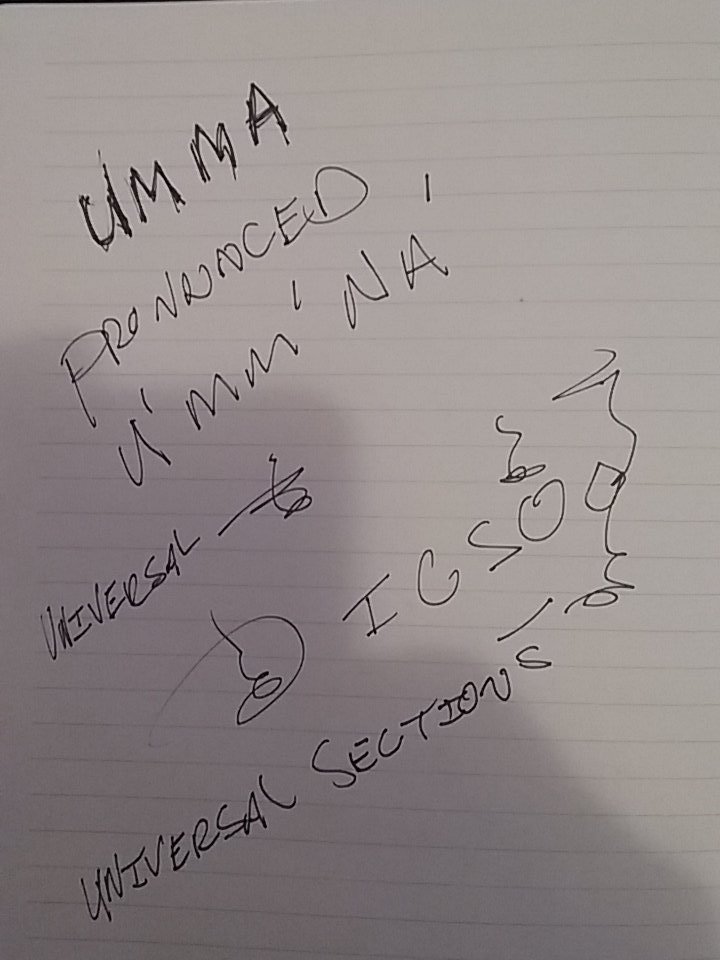 UMMA
PRONNUNCED
U'MM' NA'
UNIVERSAL
ICSO
UNIVERSAL SECTIONS